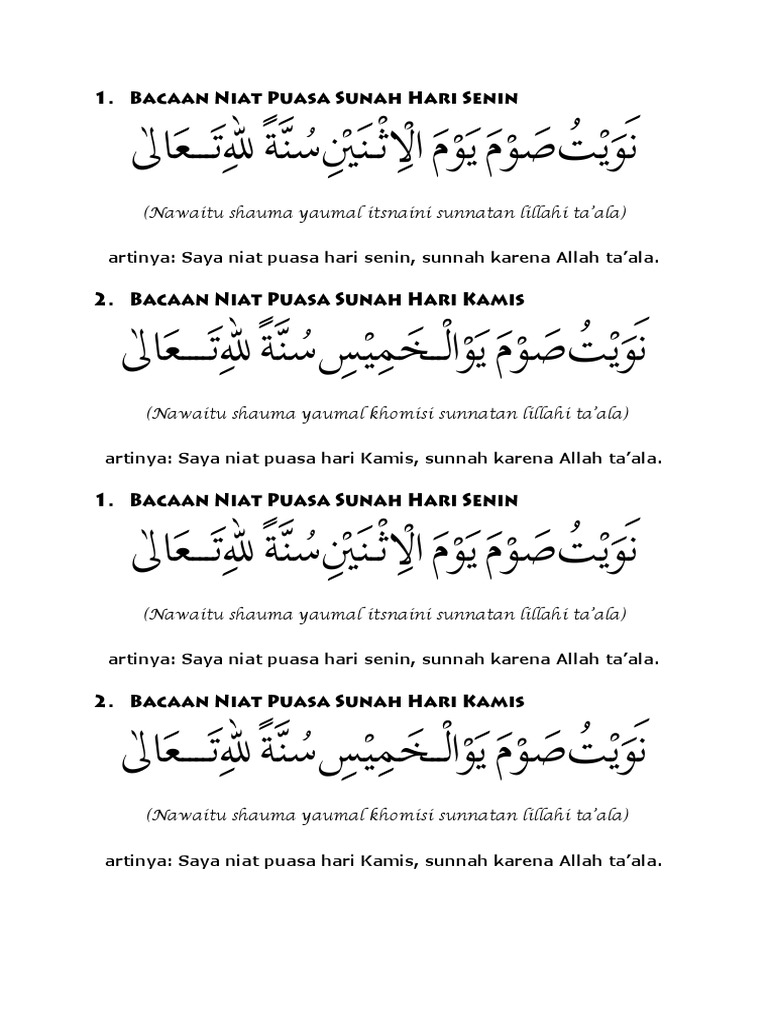 1. Bacaan Niat Puasa Sunah Hari Senin
نَوَيْتُ صَوْمَ يَوْمَ الْاِثْنَيْنِ سُنَّةً لِلّٰهِ تَـــعَالٰى
(Nawaitu shauma yaumal itsnaini sunnatan lillahi ta’ala)
artinya: Saya niat puasa hari senin, sunnah karena Allah ta’ala.
2. Bacaan Niat Puasa Sunah Hari Kamis
نَوَيْتُ صَوْمَ يَوْالْـــخَمِيْسِ سُنَّةً لِلّٰهِ تَـــعَالٰى
(Nawaitu shauma yaumal khomisi sunnatan lillahi ta’ala)
artinya: Saya niat puasa hari Kamis, sunnah karena Allah ta’ala.
1. Bacaan Niat Puasa Sunah Hari Senin
نَوَيْتُ صَوْمَ يَوْمَ الْاِثْنَيْنِ سُنَّةً لِلّٰهِ تَـــعَالٰى
(Nawaitu shauma yaumal itsnaini sunnatan lillahi ta’ala)
artinya: Saya niat puasa hari senin, sunnah karena Allah ta’ala.
2. Bacaan Niat Puasa Sunah Hari Kamis
نَوَيْتُ صَوْمَ يَوْالْـــخَمِيْسِ سُنَّةً لِلّٰهِ تَـــعَالٰى
(Nawaitu shauma yaumal khomisi sunnatan lillahi ta’ala)
artinya: Saya niat puasa hari Kamis, sunnah karena Allah ta’ala.